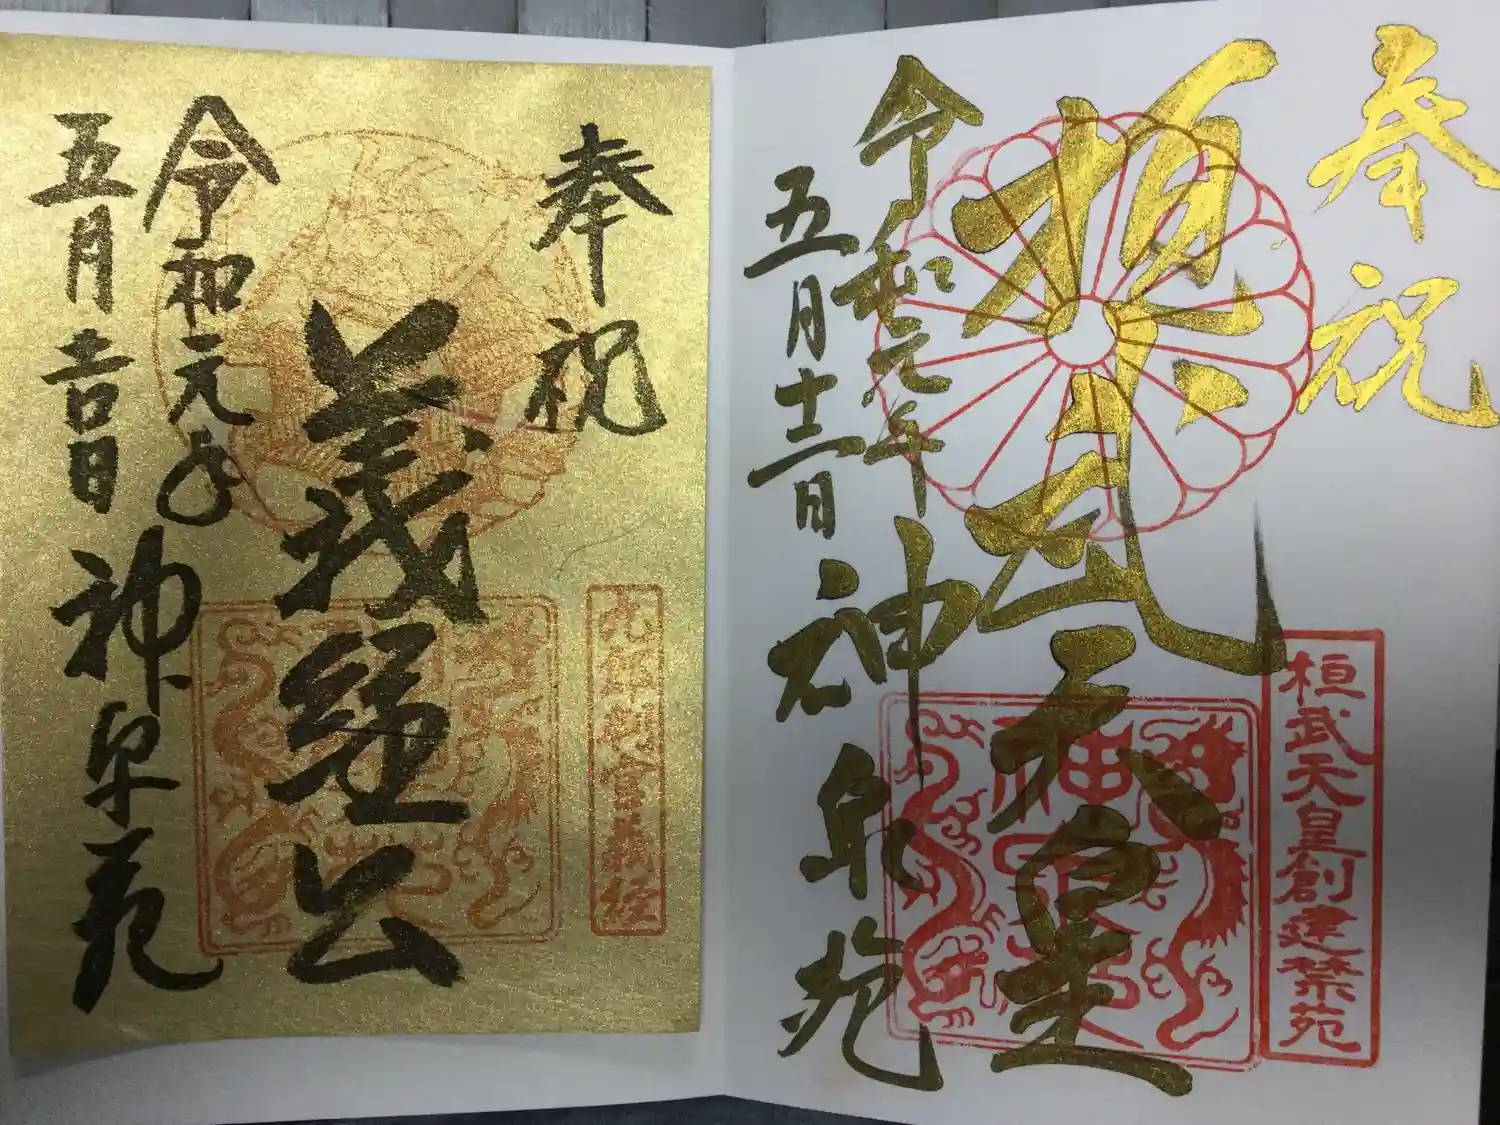 奉祝
桓武天皇創建禁苑
桓武天皇
令和元年
五月十二日
神泉苑
奉祝
九郎判官義経
義経公
令和元年
五月吉日
神泉苑